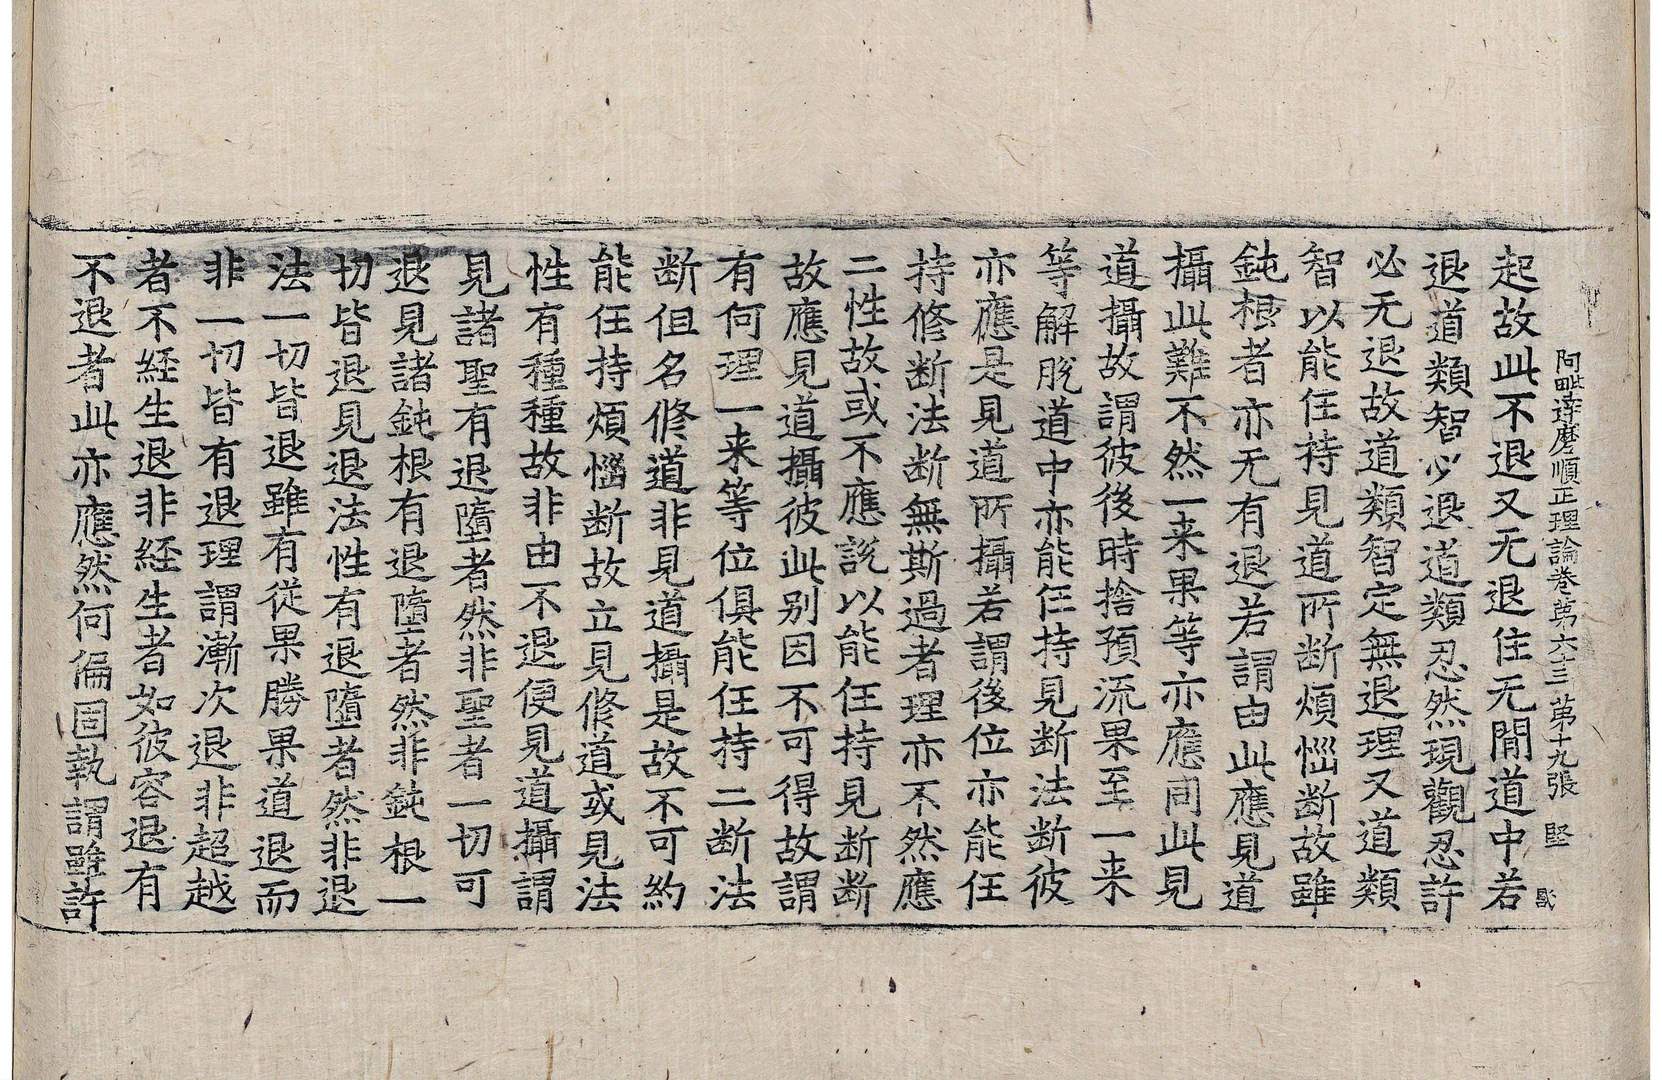 阿毗達磨順正理論卷第六十三 第十九張 堅
起故此不退又无退住无間道中若
退道類智必退道類忍然現觀忍許
必无退故道類智定無退理又道類
智以能任持見道所断煩惱断故雖
鈍根者亦无有退若謂由此應見道
攝此難不然一来果等亦應同此見
道攝故謂彼後時捨預流果至一来
等解脫道中亦能任持見断法断彼
亦應是見道所攝若謂後位亦能任
持修断法断無斯過者理亦不然應
二性故或不應說以能任持見断断
故應見道攝彼此别因不可得故謂
有何理一来等位俱能任持二断法
断但名修道非見道攝是故不可約
能任持煩惱断故立見修道或見法
性有種種故非由不退便見道攝謂
見諸聖有退墮者然非聖者一切可
退見諸鈍根有退墮者然非鈍根一
切皆退見退法性有退墮者然非退
法一切皆退雖有從果勝果道退而
非一切皆有退理謂漸次退非超越
者不經生退非經生者如彼容退有
不退者此亦應然何偏固執謂雖許